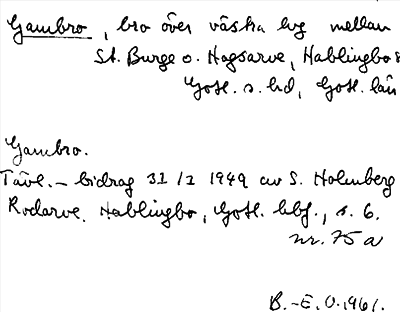 Gambro, bro över västra lvg mellan
St. Burge o. Hagsarve, Hablingbo s
Gotl. s. hd, Gotl. län
Gambro.
Tävl.- bidrag 31/1 1949 av S. Holmberg
Rodarve, Hablingbo, Gotl. hbf., s. 6.
nr. 75 a
B.-E. O. 1961.